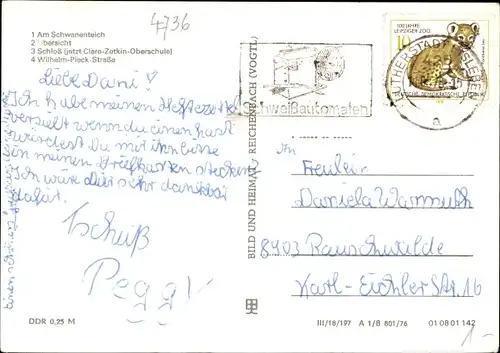 4736
1 Am Schwanenteich
2 Übersicht
3 Schloß (jetzt Clara-Zetkin-Oberschule)
4 Wilhelm-Pieck-Straße
Liebe Dani!
Ich habe meinen
verspielt wenn du einen hast
würdest du mir ihn bitte
in meinen Briefkasten stecken
Ich wäre dir sehr dankbar
dafür.
Tschüß
Peggy
Einen schönen
DDR 0,25 M
BILD UND HEIMAT REICHENBACH (VOGTL)
Schweißautomaten
100 JAHRE
LEIPZIGER ZOO
10
DEUTSCHE DEMOKRATISCHE REPUBLIK
LUTHERSTADT EISLEBEN
a
An
Freulein
Daniela Warmuth
8903 Rauschwalde
Karl-Eichler Str. 16
III/18/197 A 1/B 801/76 01 08 01 142
1,-